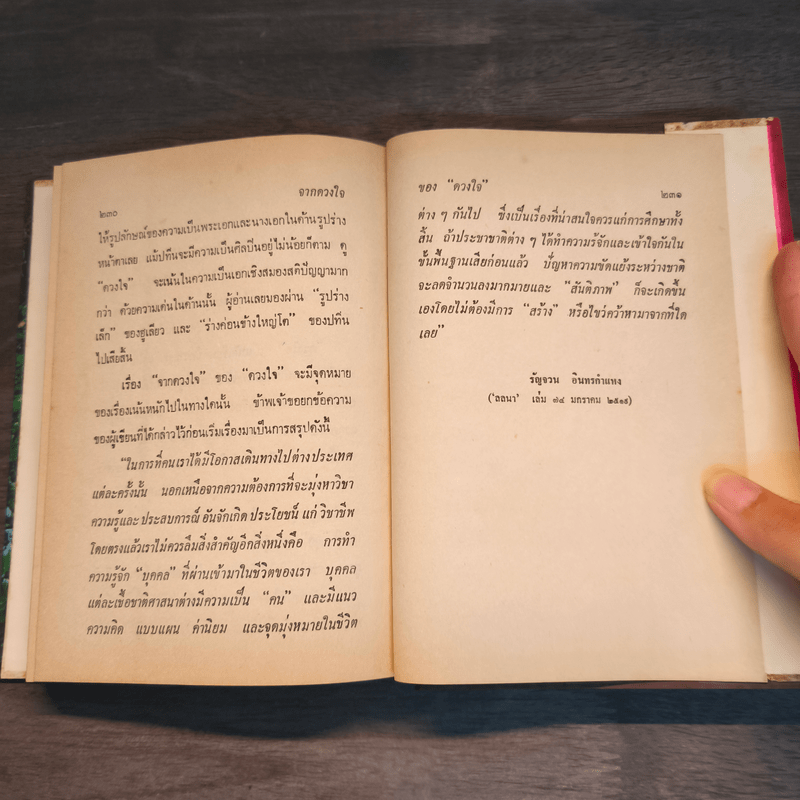 ๒๓๐
จากดวงใจ
ให้รูปลักษณ์ของความเป็นพระเอกและนางเอกในด้านรูปร่าง
หน้าตาเลย แม้ปทีนจะมีความเป็นศิลปินอยู่ไม่น้อยก็ตาม ดู
“ดวงใจ” จะเน้นในความเป็นเอกเชิงสมองสติปัญญามาก
กว่า ด้วยความเด่นในด้านนั้น ผู้อ่านเลยมองผ่าน “รูปร่าง
เล็ก” ของฮูเลียว และ “ร่างค่อนข้างใหญ่โต” ของปทีน
ไปเสียสิ้น
เรื่อง “จากดวงใจ” ของ “ดวงใจ” จะมีจุดหมาย
ของเรื่องเน้นหนักไปในทางใดนั้น ข้าพเจ้าขอยกข้อความ
ของผู้เขียนที่ได้กล่าวไว้ก่อนเริ่มเรื่องมาเป็นการสรุปดังนี้
“ในการที่คนเราได้มีโอกาสเดินทางไปต่างประเทศ
แต่ละครั้งนั้น นอกเหนือจากความต้องการที่จะมุ่งหาวิชา
ความรู้และประสบการณ์ อันจักเกิด ประโยชน์ แก่ วิชาชีพ
โดยตรงแล้วเราไม่ควรลืมสิ่งสำคัญอีกสิ่งหนึ่งคือ การทำ
ความรู้จัก “บุคคล” ที่ผ่านเข้ามาในชีวิตของเรา บุคคล
แต่ละเชื้อชาติศาสนาต่างมีความเป็น “คน” และมีแนว
ความคิด แบบแผน ค่านิยม และจุดมุ่งหมายในชีวิต
ของ “ดวงใจ”
๒๓๑
ต่าง ๆ กันไป ซึ่งเป็นเรื่องที่น่าสนใจควรแก่การศึกษาทั้ง
สิ้น ถ้าประชาชาติต่าง ๆ ได้ทำความรู้จักและเข้าใจกันใน
ขั้นพื้นฐานเสียก่อนแล้ว ปัญหาความขัดแย้งระหว่างชาติ
จะลดจำนวนลงมากมายและ “สันติภาพ” ก็จะเกิดขึ้น
เองโดยไม่ต้องมีการ “สร้าง” หรือไขว่คว้าหามาจากที่ใด
เลย”
รัญจวน อินทรกำแหง
(‘ลลนา’ เล่ม ๗๔ มกราคม ๒๕๑๙)